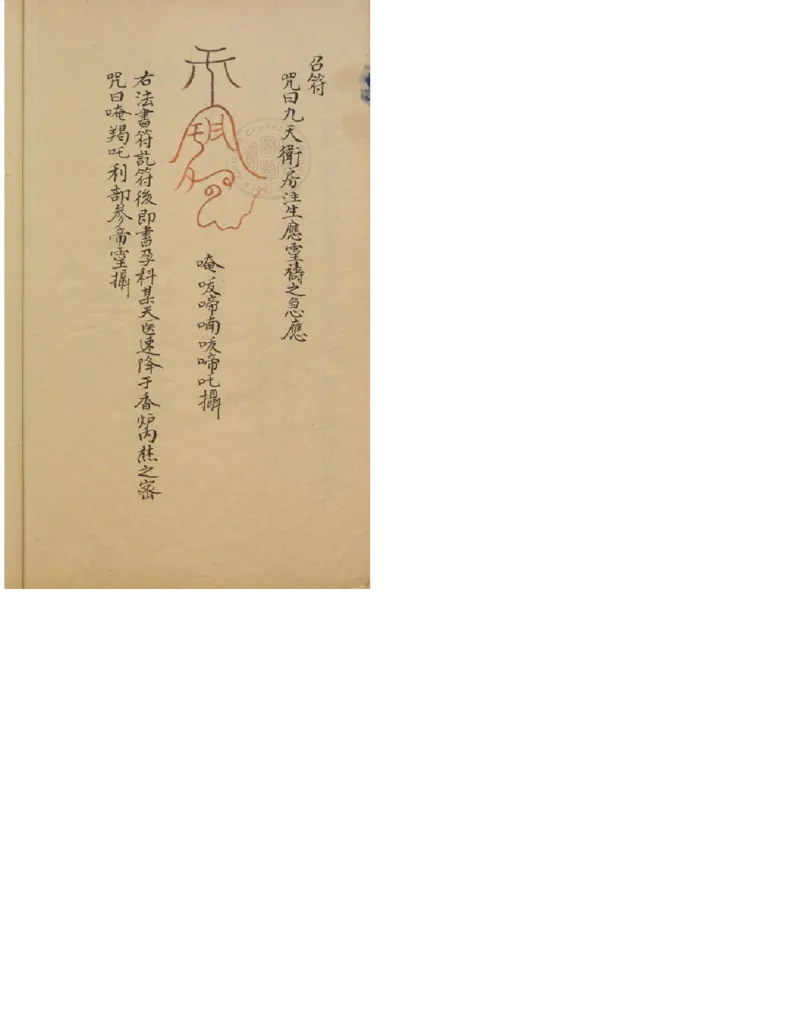 召符
咒曰九天衛房注生應霊禱之急應
唵㖶啼喃㖶啼吒攝
右法書符訖符後即書孕科某天医速降于香炉内焦之密
咒曰唵羯吒利部參帝霊攝